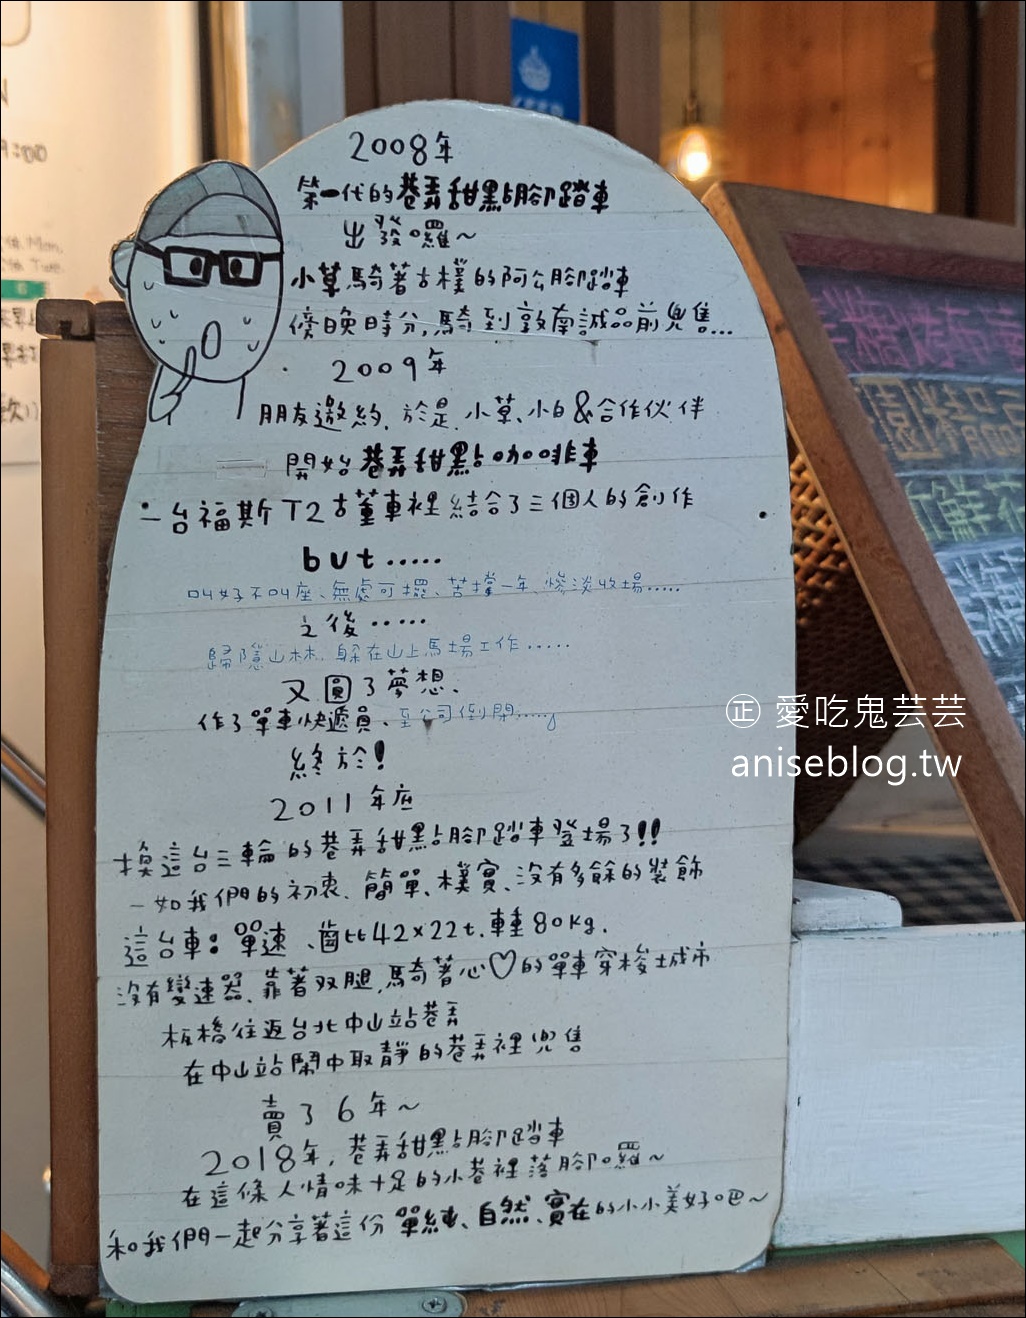 2008年
第一代的巷弄甜點腳踏車
出發囉~
小草騎著古樸的阿公腳踏車
傍晚時分,騎到敦南誠品前兜售...
2009年
朋友邀約、於是、小草、小白&合作伙伴
開始巷弄甜點咖啡車
一台福斯T2古董車裡結合了三個人的創作
but.....
叫好不叫座、無處可擺、苦撐一年、慘淡收場.....
之後.....
歸隱山林、躲在山上馬場工作.....
又圓了夢想、
作了單車快遞員、至公司倒閉.....
終於!
2011年底
換這台三輪的巷弄甜點腳踏車登場了!!
一如我們的初衷、簡單、樸實、沒有多餘的裝飾
這台車:單速、齒比42x22t.車重80kg.
沒有變速器、靠著双腿,騎著心♡的單車穿梭城市
板橋往返台北中山站巷弄
在中山站鬧中取靜的巷弄裡兜售
賣了6年~
2018年,巷弄甜點腳踏車
在這條人情味十足的小巷裡落腳囉~
和我們一起分享著這份單純、自然、實在的小小美好吧~
正 愛吃鬼芸芸
aniseblog.tw
9:00
Mon.
Tue.